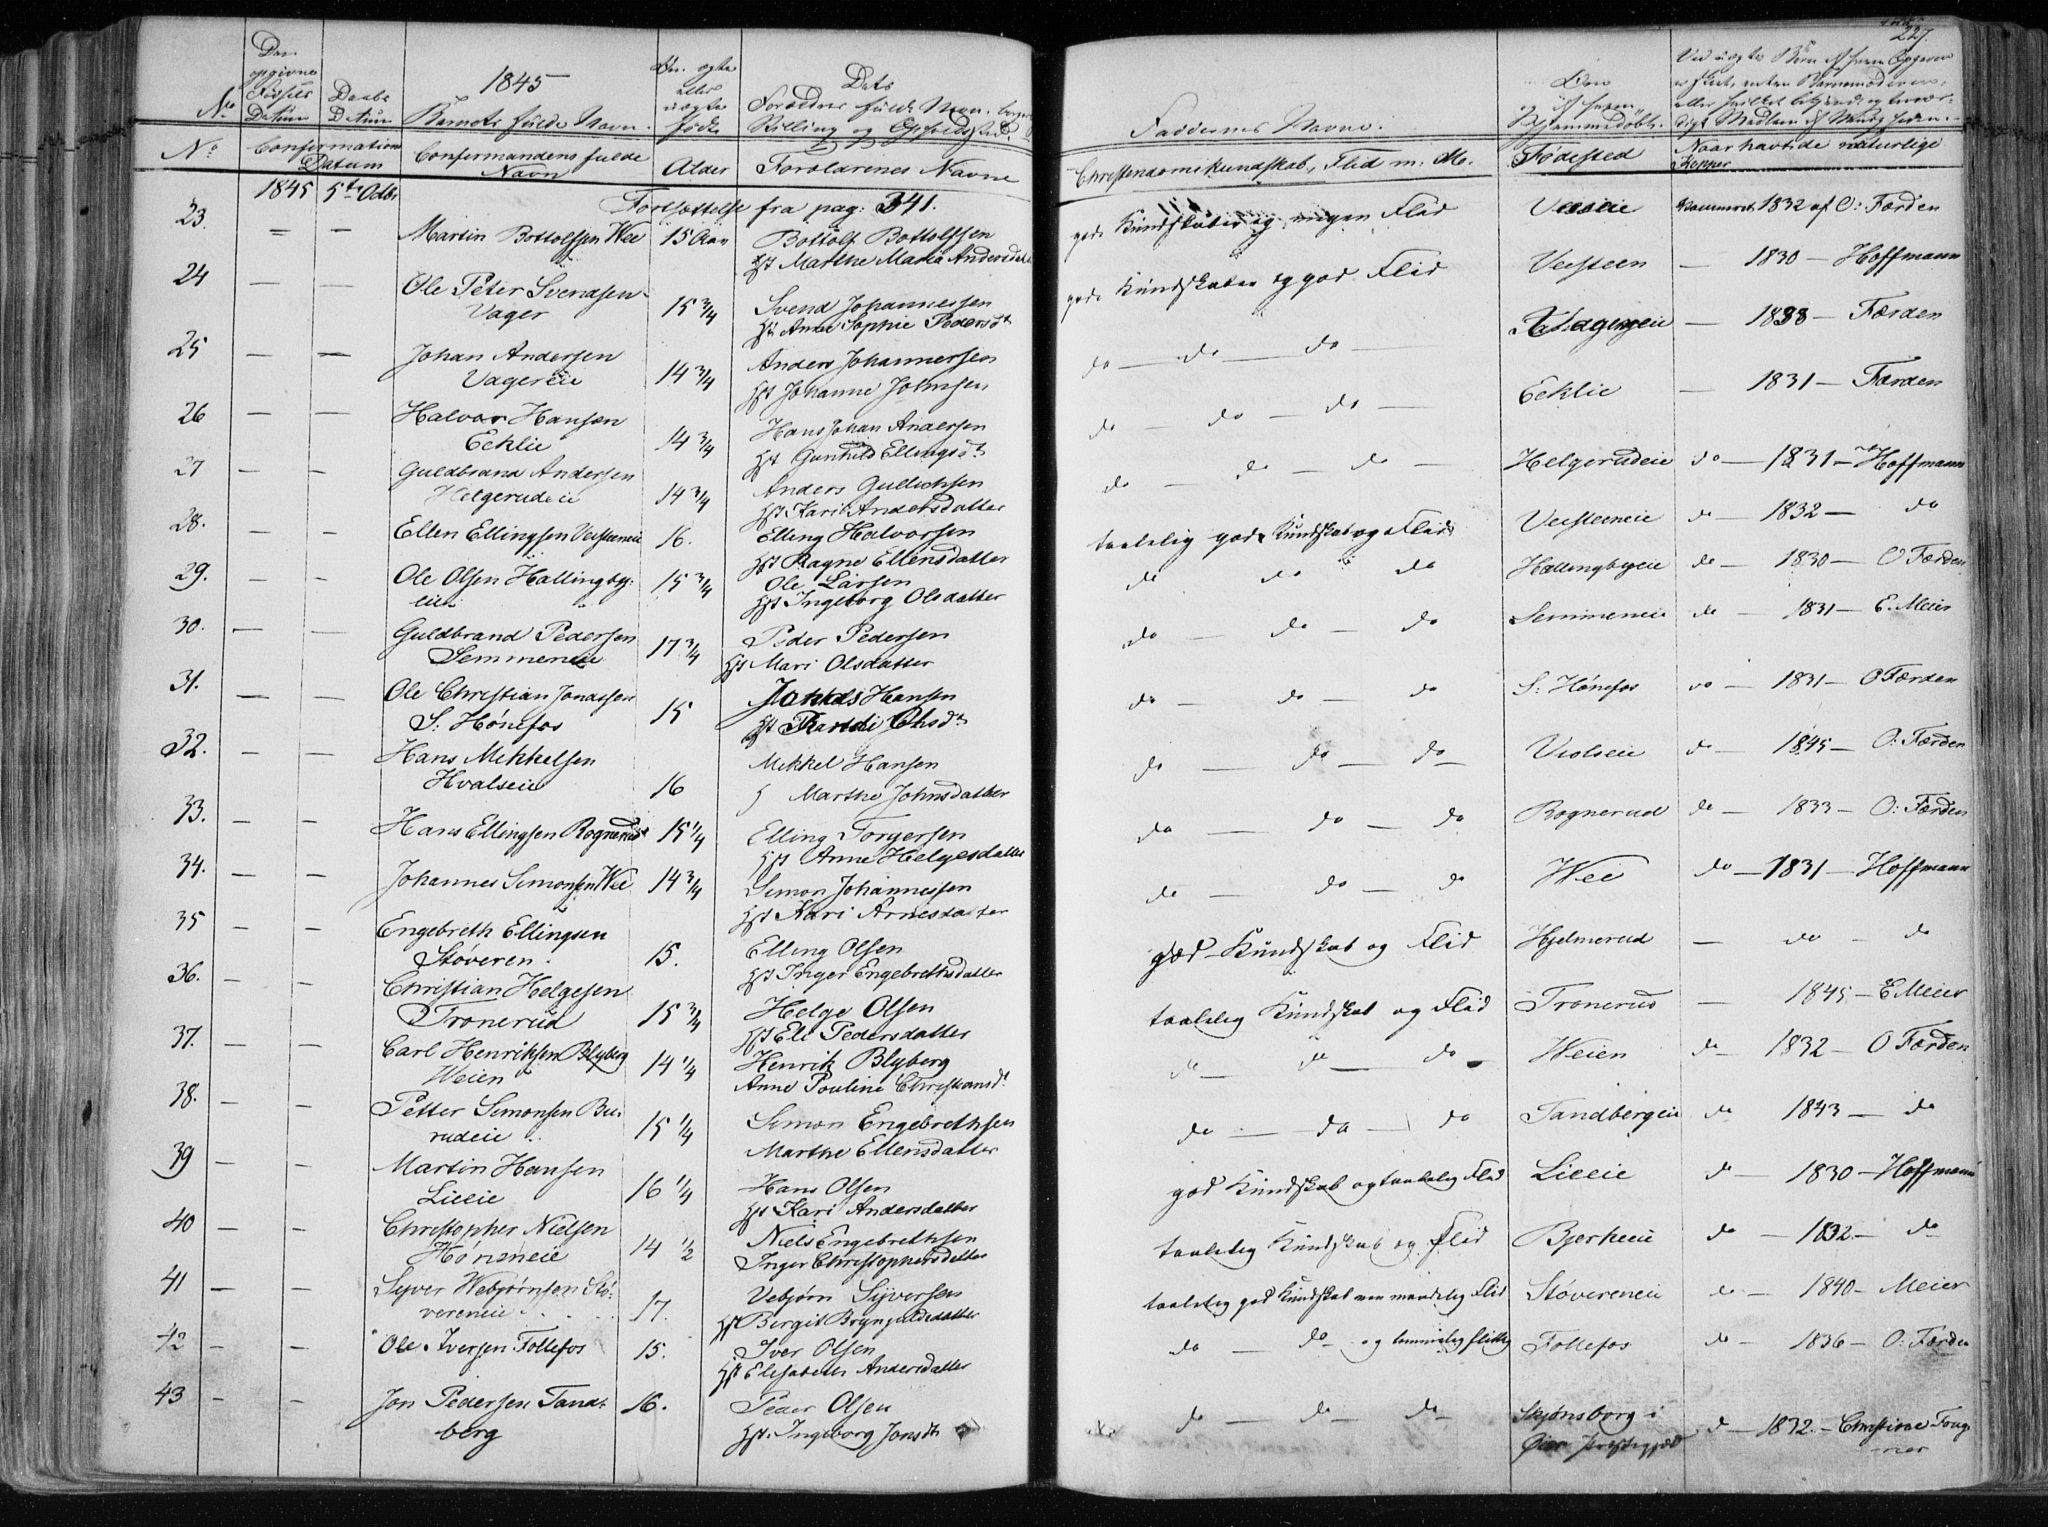 227.
No
Den opgivne Fødsels Datum
Daabs Datum
1845
Barnets fulde Navn.
ægte eller uægte Fødte
Dets Forældres fulde Navn,
Stilling og Opholdssted.
Faddernes Navne.
No
Confirmations Datum
Confirmandens fulde Navn
Alder
Forældrenes Navne
Christendomskundskab, Flid m. Mo.
Fødested
Naar havt de naturlige Kopper
1845 5te Octbr
Fortsættelse fra pag: 341.
23. — — Martin Bottolfsen Wee 15 Aar Bottolf Bottolfsen
Hst Marthe Maria Andersdatt
gode Kundskaber og megen Flid 1832 af O: Færden
24 — — Ole Peter Svendsen
Vager 15 3/4 Svend Johannessen
Hst Anne Sophie Pedersdt
gode Kundskaber og god Flid Veisteen — 1830 — Hoffmann
25 — — Johan Andersen
Vagereie 14 3/4 Anders Johannessen
Hst Johanne Johnsen
do — do — do — 1838 — Færden
26 — — Halvor Hansen
Eeklie 14 3/4 Hans Johan Andersen
Hst Gunhild Ellingsdt
do — do — do — Eeklie — 1831 — Færden
27 — — Guldbrand Andersen
Helgerudeie 14 3/4 Anders Gullichsen
Hst Kari Andersdatter
do — do — do — Helgerudeie do — 1831 — Hoffmann
28. — — Ellen Ellingsen Veisteeneie 16. Elling Halvorsen
Hst Ragne Ellensdatter
taalelig gode Kundskab og Flid Veisteeneie do — 1832 — do
29. — — Ole Olsen Hallingby-
eie 15 3/4 Ole Larsen
Hst Ingeborg Olsdatter
do do do Hallingbyeie do — 1830 — O Færden
30. — — Guldbrand Pedersen
Semmeneie 17 3/4 Peder Pedersen
Hst Mari Olsdatter
do — do — do Semmeneie do — 1831 — E. Meier
31. — — Ole Christian Jonassen
S. Hønefos 15 Jonas Hansen
Hst Olsdt
do — do — do S: Hønefos do — 1831 — O Færden
32. — — Hans Mikkelsen
Hvalseie 16 Mikkel Hansen
Marthe Johnsdatter
do — do — do do — 1845 — O: Færden
33. — — Hans Ellingsen Rognerud 15 1/4 Elling Torgersen
Hst Anne Helgesdatter
do — do — do Rognerud do — 1833 — O: Færden
34. — — Johannes Simonsen Wee 14 3/4 Simon Johannessen
Hst Kari Arnesdatter
do — do — do Wee do — 1831 — Hoffmann
35 — — Engebreth Ellingsen
Støveren. 15. Elling Olsen
Hst Inger Engebrethsdatter
god Kundskab og Flid Hjelmerud — do — do
36. — — Christian Helgesen
Tronerud 15 3/4 Helge Olsen
Hst Eli Pedersdatter
taalelig Kundskab og Flid Tronerud — 1845 — E Meier
37. — — Carl Henriksen Blyberg
Weien 14 1/4 Henrik Blyberg
Anne Pouline Christiansdt
do — do — do Weien do — 1832 — O Færden
38. — — Petter Simonsen Bu-
rudeie 15 1/4 Simon Engebrethsen
Marthe Ellensdatter
do — do — do Tandbergeie do — 1843 — do
39 — — Martin Hansen
Lieeie 16 1/4 Hans Olsen
Hst Kari Andersdatter
god Kundskab og taalelig Flid Lieeie do — 1830 — Hoffmann
40 — — Christopher Nielsen
Hønsneie 14 1/2 Niels Engebrethsen
Inger Christophersdatter
taalelig Kundskab og Flid Bjerkeeie do — 1832 — do
41 — — Syver Webjørnsen Stø-
vereneie 17. Vebjørn Syversen
Hst Birgit Brynjulfsdatter
taalelig god Kundskab men maadelig Flid Støvereneie do — 1840 — Meier
42 — — Ole Iversen Follefos 15. Iver Olsen
Hst Elisabeth Andersdatter
do — do — og temmelig flittig Follefos do — 1836 — O: Færden
43 — — Jon Pedersen Tand-
berg 16. Peder Olsen
Hst. Ingeborg Jonsdt
do — do — do Skjønsborg i
Øier Præstegjæld do — 1832 — Christine Foug-
ner